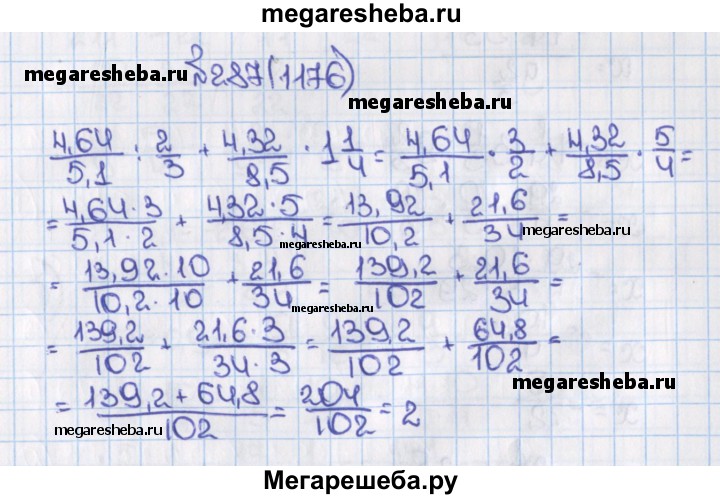 megaresheba.ru
№287(1176)
megaresheba.ru
megaresheba.ru
4,64/5,1 : 2/3 + 4,32/8,5 · 1 1/4 = 4,64/5,1 · 3/2 + 4,32/8,5 · 5/4 =
= 4,64·3/5,1·2 + 4,32·5/8,5·4 = 13,92/10,2 + 21,6/34 =
megaresheba.ru
megaresheba.ru
= 13,92·10/10,2·10 + 21,6/34 = 139,2/102 + 21,6/34 =
megaresheba.ru
= 139,2/102 + 21,6·3/34·3 = 139,2/102 + 64,8/102 =
megaresheba.ru
= 139,2+64,8/102 = 204/102 = 2
megaresheba.ru
Мегарешеба.ру